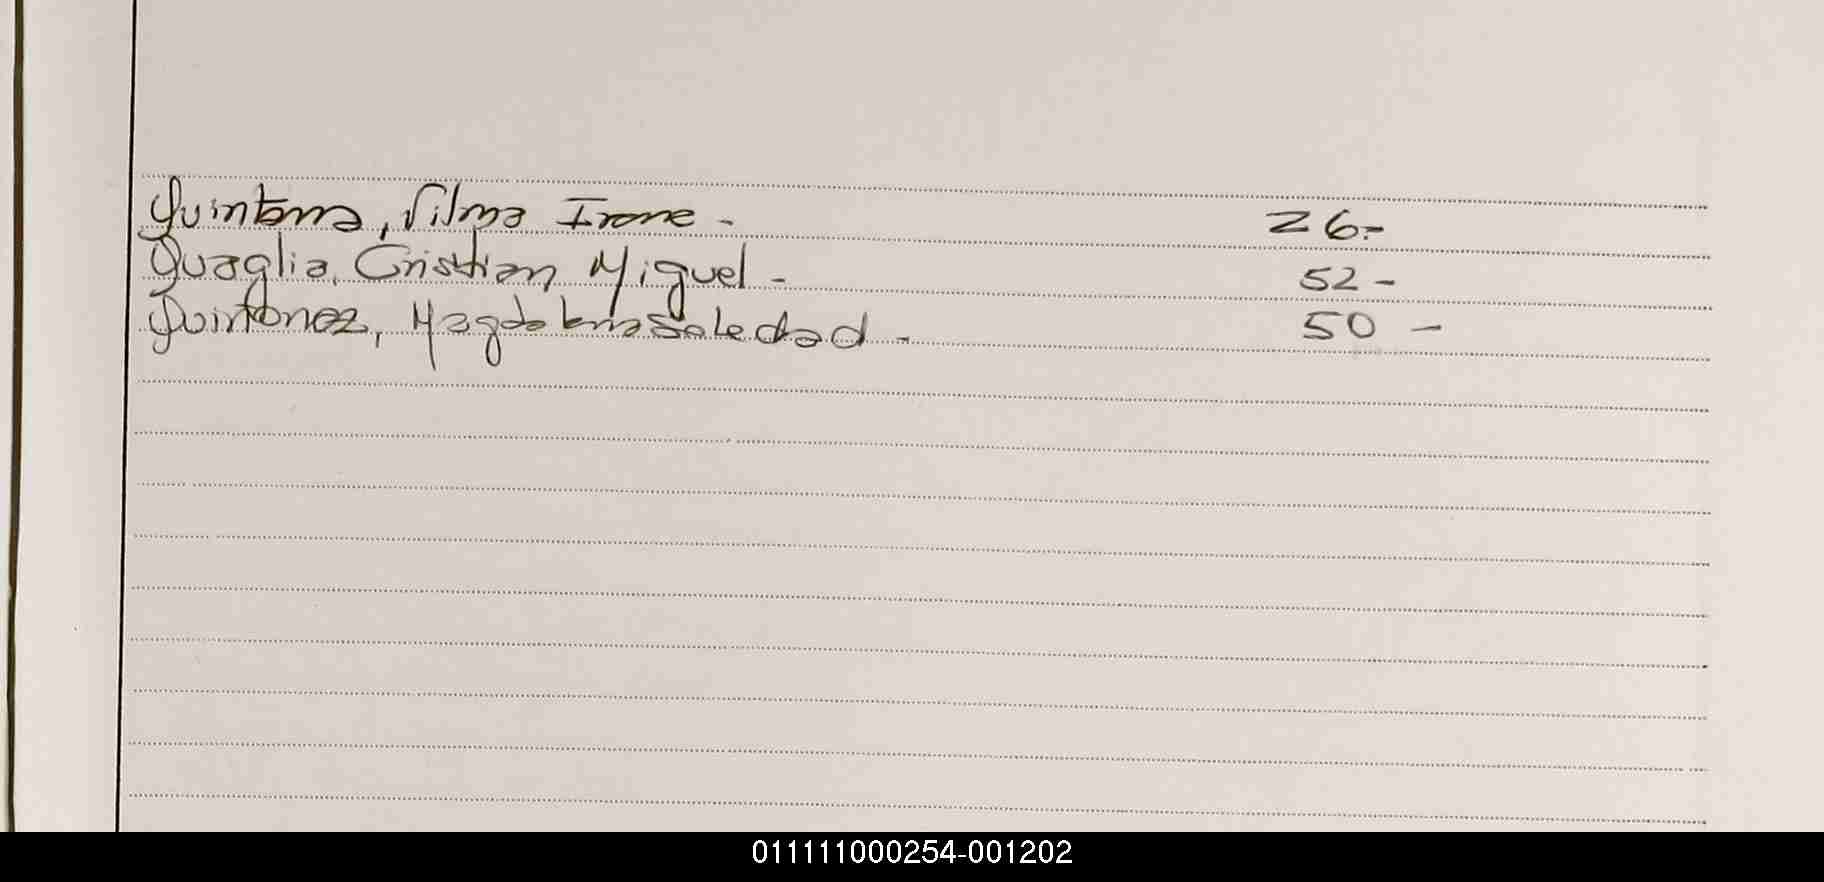 Quintana, Vilma Irene - 26.-
Quaglia, Cristian Miguel - 52 -
Quintonez, Magdalena Soledad - 50 -
011111000254-001202